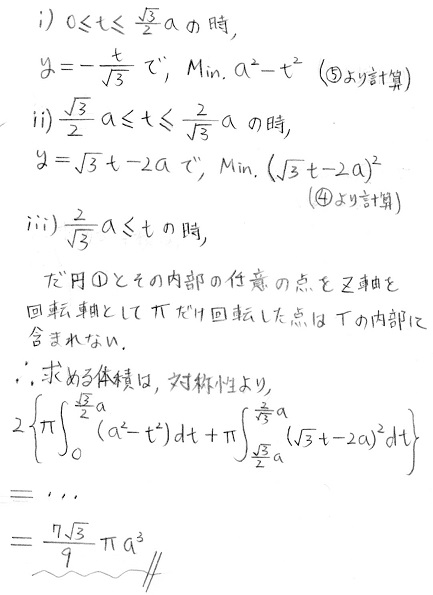 i) 0≦t≦ √3/2 a の時,
y = - t/√3 で, Min. a²-t² (⑤より計算)
ii) √3/2 a≦t≦ 2/√3 a の時,
y = √3t-2a で, Min. (√3t-2a)²
(④より計算)
iii) 2/√3 a≦t の時,
だ円①とその内部の任意の点をZ軸を
回転軸としてπだけ回転した点はTの内部に
含まれない.
∴求める体積は, 対称性より,
2{π∫_0^{√3/2 a} (a²-t²)dt + π∫_{√3/2 a}^{2/√3 a} (√3t-2a)²dt}
= ···
= 7√3/9 πa³